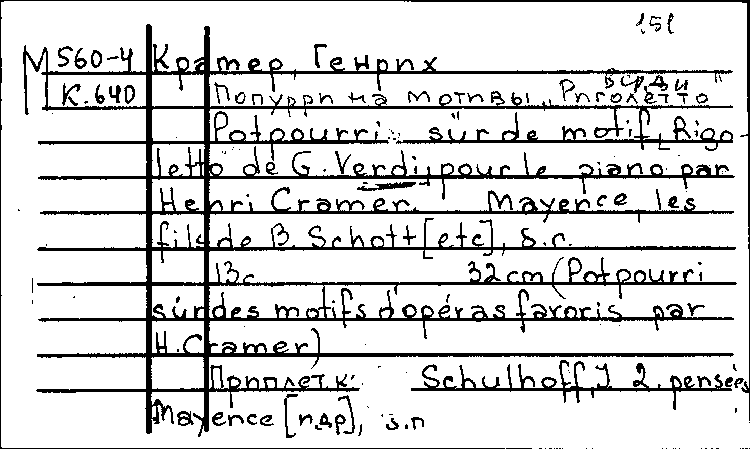 151
М 560-4 Крамер, Генрих
К.640 Попурри на мотивы „Риголетто" Верди
Potpourri sür de motif, Rigo-
letto de G. Verdi, pour le piano par
Henri Cramer. Mayence, les
fils de B. Schott [etc], s.c.
13c 32cm (Potpourri
sür des motifs d'opéras favoris par
H. Cramer)
Приплет. к: Schulhoff, J 2. pensées
Mayence [и др], s.n